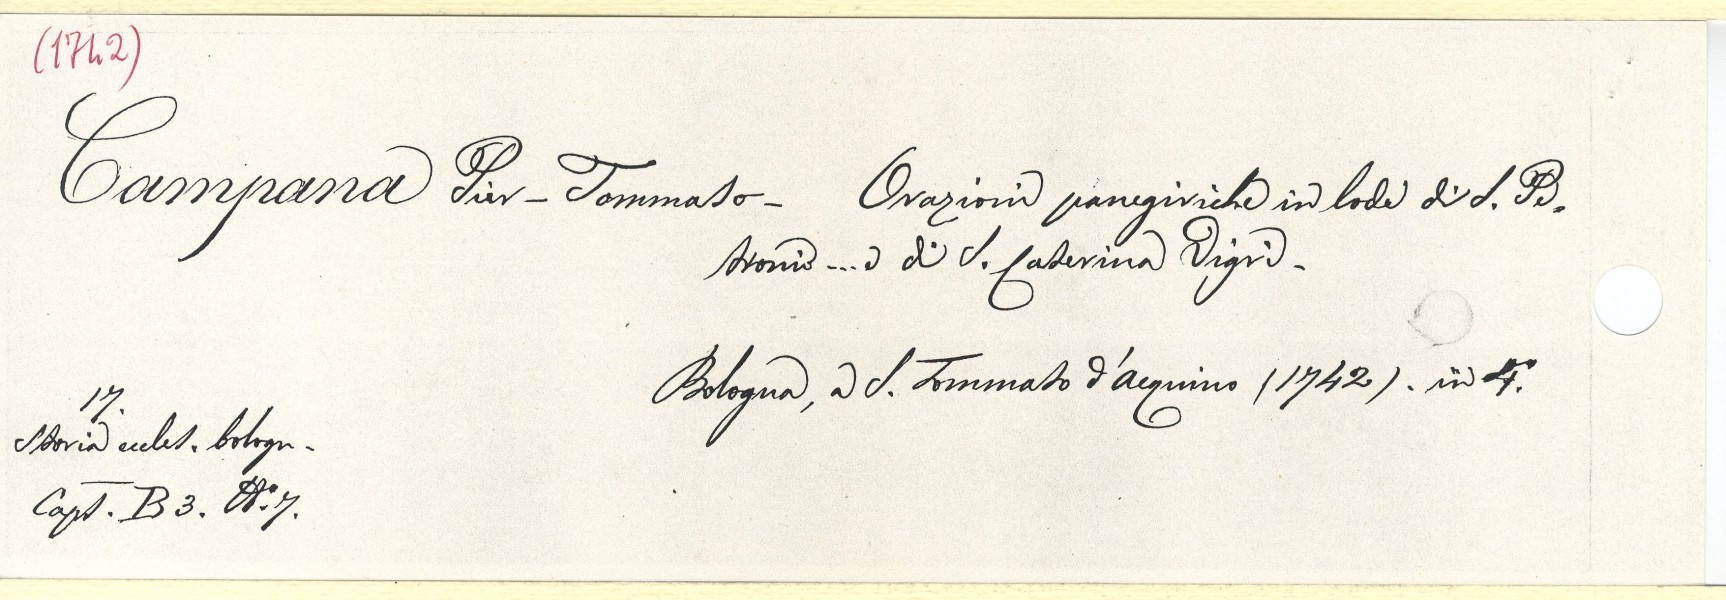 (1742)
Campana Pier-Tommaso- Orazioni panegiriche in lode di S. Pe-
tronio ... e di S. Caterina Vigri-
Bologna, a S. Tommaso d'Acquino (1742). in 4°.
17.
Storia eccles. bologn-
Capt. B 3. N.° 7.